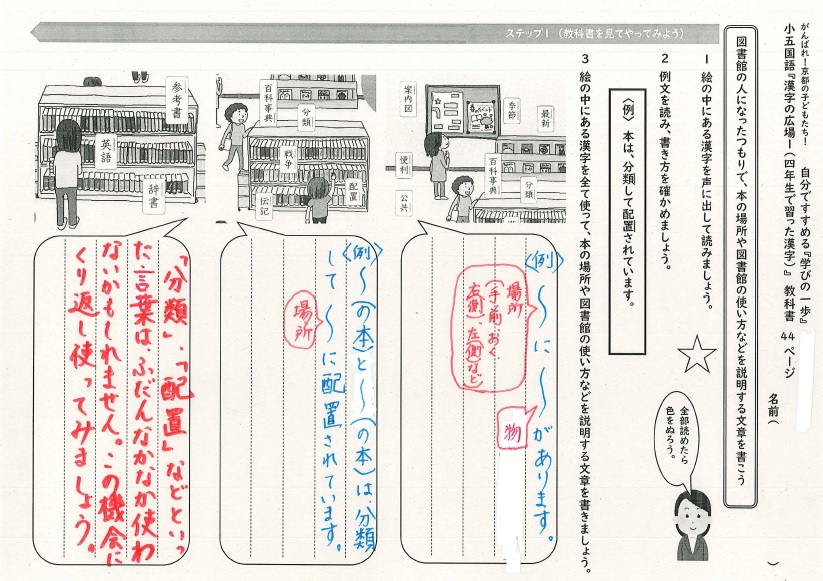 がんばれ！京都の子どもたち！　自分ですすめる『学びの一歩』
小五国語『漢字の広場１（四年生で習った漢字）』 教科書 44 ページ
名前（　　　）
図書館の人になったつもりで、本の場所や図書館の使い方などを説明する文章を書こう
ステップ１（教科書を見てやってみよう）
１ 絵の中にある漢字を声に出して読みましょう。
全部読めたら
色をぬろう。
２ 例文を読み、書き方を確かめましょう。
〈例〉 本は、分類して配置されています。
３ 絵の中にある漢字を全て使って、本の場所や図書館の使い方などを説明する文章を書きましょう。
最新
季節
案内図
分類
百科事典
便利
公共
〈例〉
～に～があります。
場所
（手前、おく、
右側、左側など）
物
分類
百科事典
戦争
配置
伝記
〈例〉～（の本）と～（の本）は、分類
して～に配置されています。
場所
参考書
英語
辞書
「分類」、「配置」などといっ
た言葉は、ふだんなかなか使わ
ないかもしれません。この機会に
くり返し使ってみましょう。